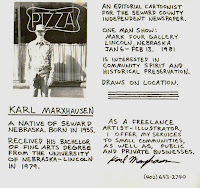 PIZZA
AN EDITORIAL CARTOONIST
FOR THE SEWARD COUNTY
INDEPENDENT NEWSPAPER.
ONE MAN SHOW:
MARK FOUR GALLERY
LINCOLN, NEBRASKA
JAN 6 - FEB 13, 1981
IS INTERESTED IN
COMMUNITY SPIRIT AND
HISTORICAL PRESERVATION.
DRAWS ON LOCATION.
KARL MARXHAUSEN
A NATIVE OF SEWARD
NEBRASKA. BORN IN 1955,
RECEIVED HIS BACHELOR
OF FINE ARTS DEGREE
FROM THE UNIVERSITY
OF NEBRASKA-LINCOLN
IN 1979.
AS A FREELANCE
ARTIST-ILLUSTRATOR,
I OFFER MY SERVICES
TO SMALL COMMUNITIES,
AS WELL AS, PUBLIC
AND PRIVATE BUSINESSES.
Karl Marxhausen
(402) 643-2740